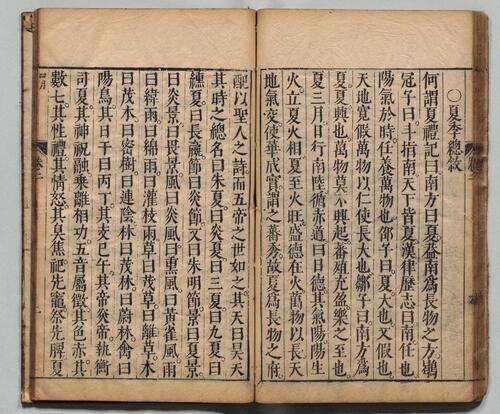 ○夏季總敘
何謂夏禮記曰南方曰夏蓋南為長物之方鶡
冠子曰斗指南天下皆夏漢律歷志曰南任也
陽氣於時任養萬物也邵子曰夏大也又假也
天地寬假萬物以仁使長大也鄒子曰南方為
夏夏興也萬物莫不興起蕃殖充盈樂之至也
夏三月日行南陸循赤道曰日德其氣陽陽生
火立夏火相夏至火旺盛德在火萬物以長天
地氣交使華成實謂之蕃秀故夏為長物之府
配以聖人之詩而五帝之世如之其天曰天
其時之總名曰朱夏曰炎夏曰三夏曰九夏曰
纁夏曰長節曰炎節又曰朱明節景曰夏景
曰炎景曰畏景風曰炎風曰熏風曰黃雀風雨
曰雨曰綿雨曰灌枝雨草曰茂草曰雜草木
曰茂木曰密樹曰連陰林曰茂林曰蔚林禽曰
陽鳥其日干曰丙丁其支巳午其帝炎帝執衡
司夏其神祝融乘離相功五音屬徵其色赤其
數七其性禮其情怒其臭焦祀先竈祭先脾夏
四月
卷二